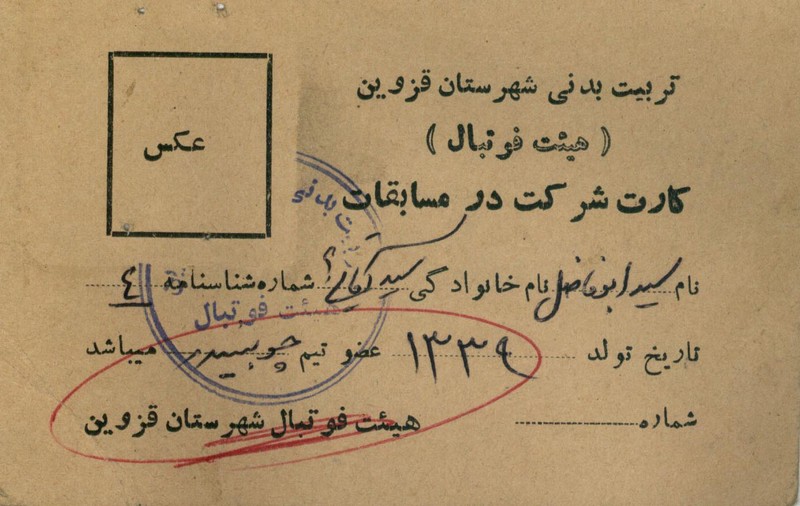 تربیت بدنی شهرستان قزوین
( هیئت فوتبال )
کارت شرکت در مسابقات
عکس
نام سید ابوفاضل نام خانوادگی سید شماره شناسنامه ٤
تاریخ تولد ۱۳۳۹ عضو تیم میباشد
شماره
هیئت فوتبال شهرستان قزوین
ت بدنی
هیئت فوتبال